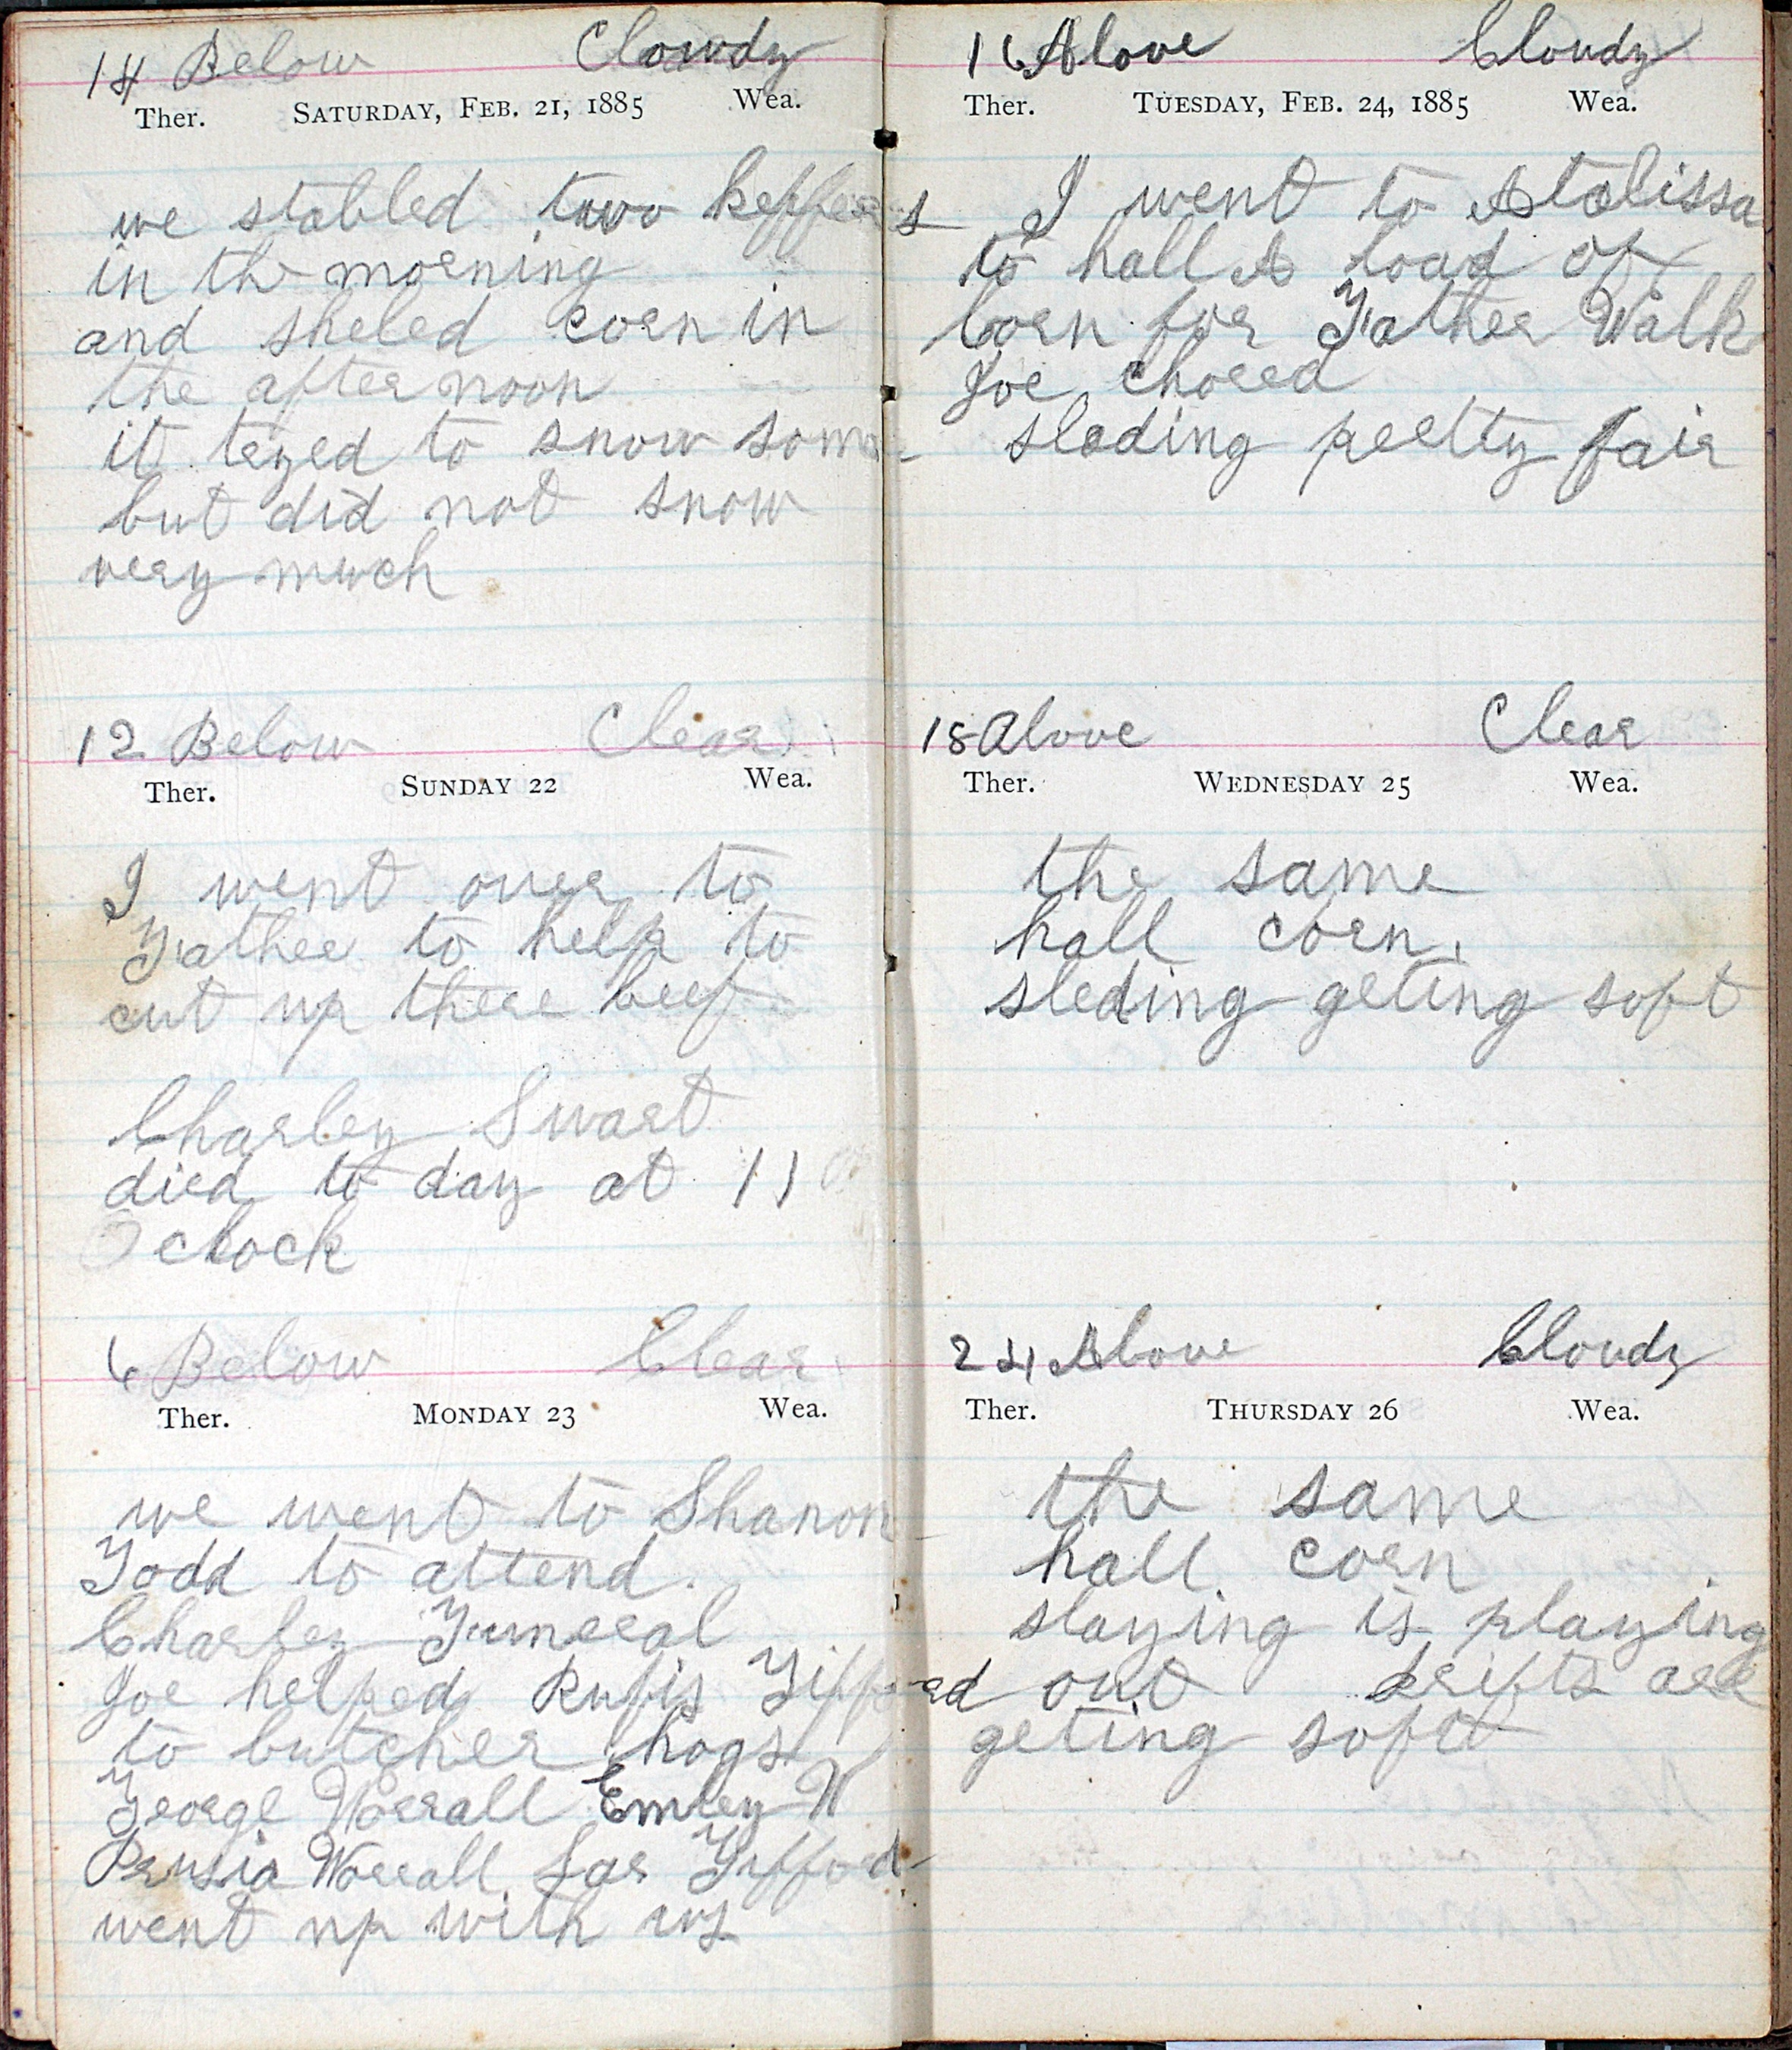 14 Below Clowdy
Ther. SATURDAY, FEB. 21, 1885 Wea.
we stabled two heffers
in the morning
and sheled corn in
the afternoon
it tryed to snow some
but did not snow
very mwch
12 Below Clear
Ther. SUNDAY 22 Wea.
I went over to
Father to help to
cut up there beef
Charley Swart
died to day at 11
O clock
6 Below Clear
Ther. MONDAY 23 Wea.
we went to Shanon
Todd to attend.
Charley Funeral
Joe helped Rufis Gifford
to butcher hogs
George Worrall Emley W
Prusia Worrall Sar Gifford
went up with us
16 Above Cloudy
Ther. TUESDAY, FEB. 24, 1885 Wea.
I went to Atalissa
to hall A load of
Corn for Father Walk
Joe chored
slading preltty fair
18 Above Clear
Ther. WEDNESDAY 25 Wea.
the same
hall corn.
sleding geting soft
24 Above Cloudy
Ther. THURSDAY 26 Wea.
the same
hall corn
slaying is playing
out drifts are
geting soft